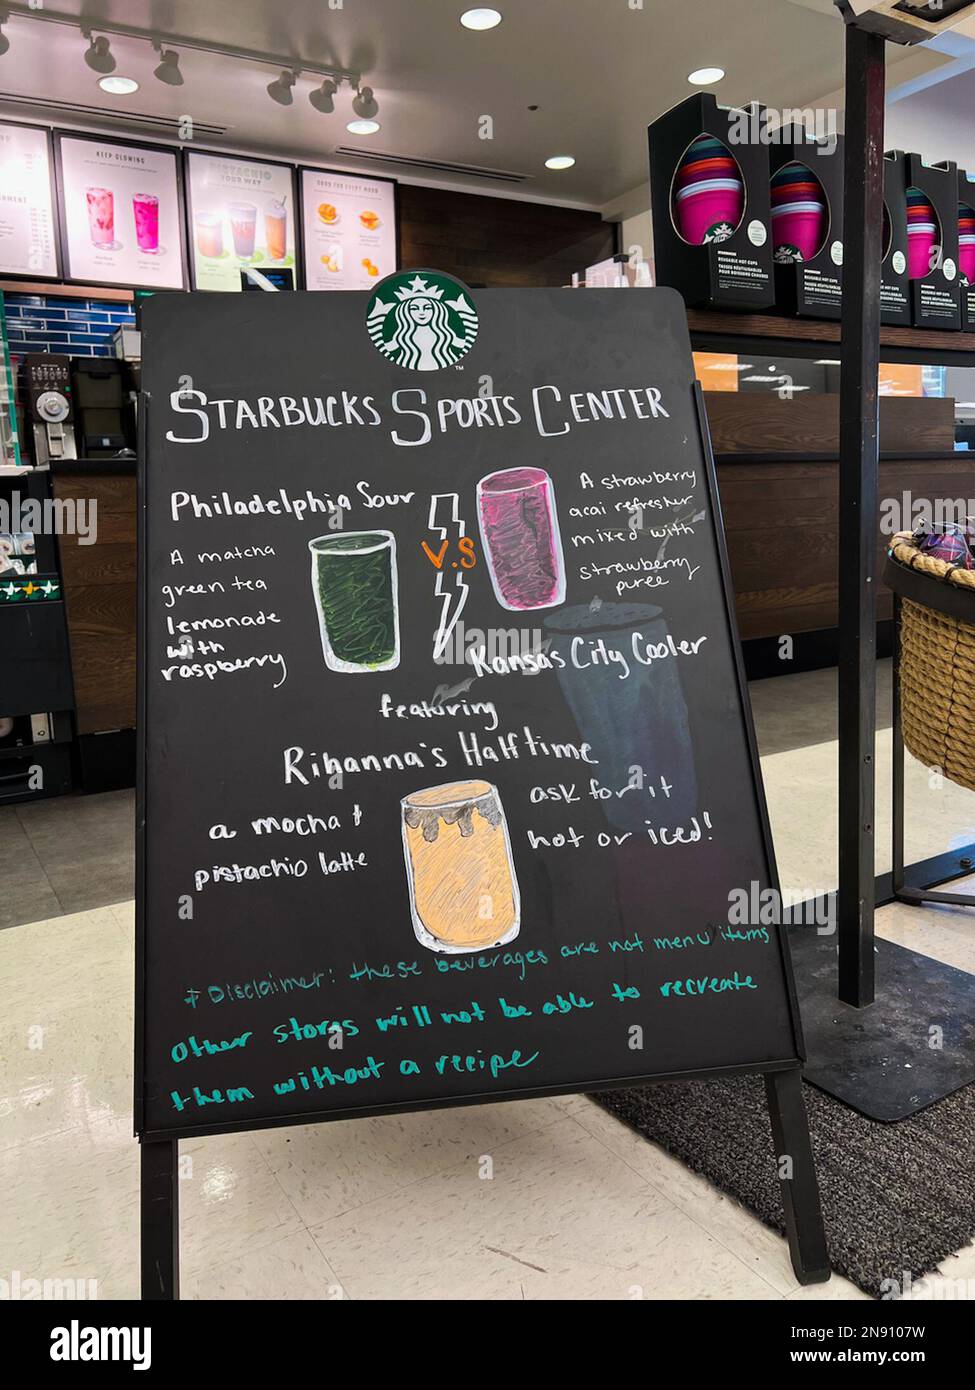 KEEP GLOWING
PISTACHIO
YOUR WAY
GOOD FOR EVERY MOOD
STARBUCKS SPORTS CENTER
Philadelphia Sour
A matcha
green tea
lemonade
with
raspberry
V.S
A strawberry
acai refresher
mixed with
strawberry
puree
Kansas City Cooler
featuring
Rihanna's Halftime
a mocha &
pistachio latte
ask for it
hot or iced!
* Disclaimer: these beverages are not menu items
other stores will not be able to recreate
them without a recipe
REUSABLE HOT CUPS
TASSES RÉUTILISABLES
POUR BOISSONS CHAUDES
alamy
Image ID: 2N9107W
www.alamy.com